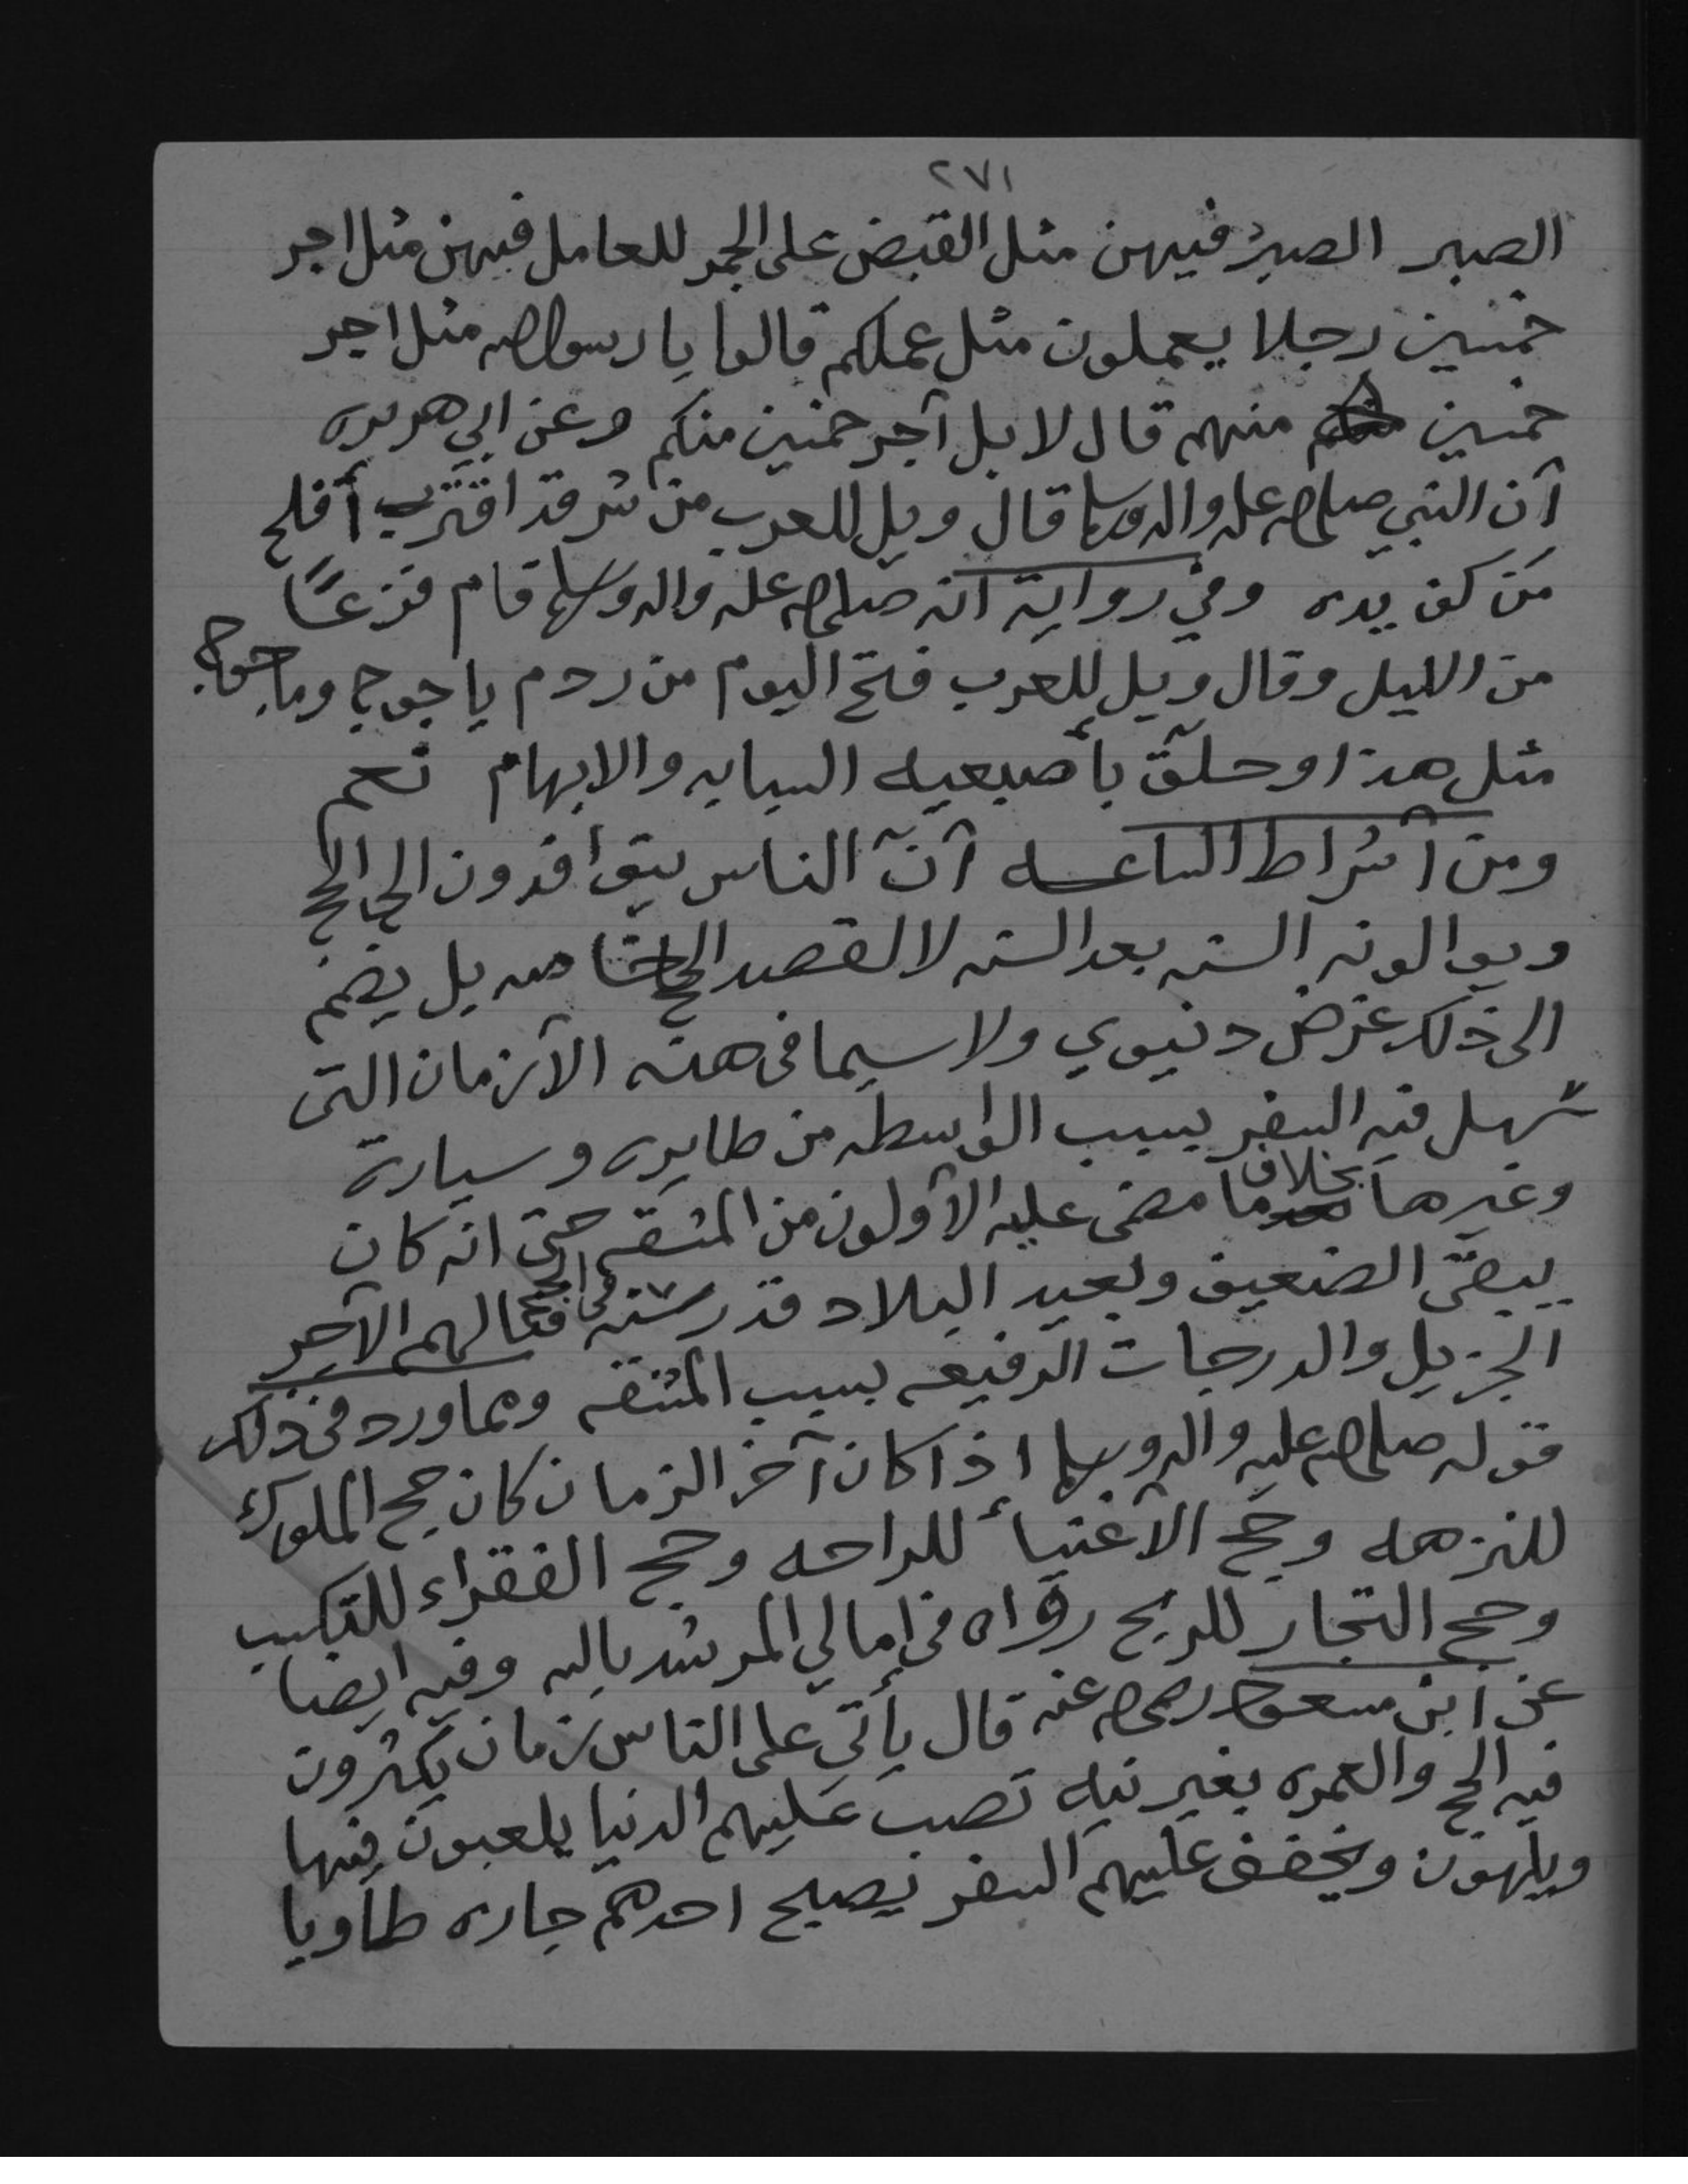 ٢٧١
الصبر الصبر فيهن مثل القبض على الجمر للعامل فيهن مثل اجر
خمسين رجلا يعملون مثل عملكم قالوا يا رسول الله مثل اجر
خمسين منهم قال لا بل أجر خمسين منكم وعن ابي هريره
أن النبي صلى الله عليه واله وسلم قال ويل للعرب من شر قد اقترب أفلح
من كف يده وفي رواية انه صلى الله عليه واله وسلم قام فزعًا
من الليل وقال ويل للعرب فتح اليوم من ردم ياجوج وماجوج
مثل هذا وحلّق بأصبعيه السبابه والابهام نعم
ومن أشراط الساعــه أنّ الناس يتوافدون الى الحج
ويوالونه السنه بعد السنه لا لقصد الحج خاصه بل يضم
الى ذلك غرض دنيوي ولا سيما في هذه الأزمان التى
سّهل فيه السفر بسبب الواسطه من طايره وسيارة
وغيرها بخلاف ما مضى عليه الأولون من المشقه حتى انه كان
يبقى الضعيف وبعيد البلاد قدر سنه في الحج فيا لهم الأجر
الجزيل والدرجات الرفيعه بسبب المشقه ومما ورد في ذلك
قوله صلى الله عليه واله وسلم اذا كان آخر الزمان كان حج الملوك
للنزهه وحج الأغنيأ للراحه وحج الفقراء للتكسب
وحج التجار للربح رواه في امالي المرشد بالله وفيه ايضا
عن ابن مسعود رضي الله عنه قال يأتي على الناس زمان يكثرون
فيه الحج والعمره بغير نيه تصب عليهم الدنيا يلعبون فيها
ويلهون ويخفف عليهم السفر يصبح احدهم جاره طاويا